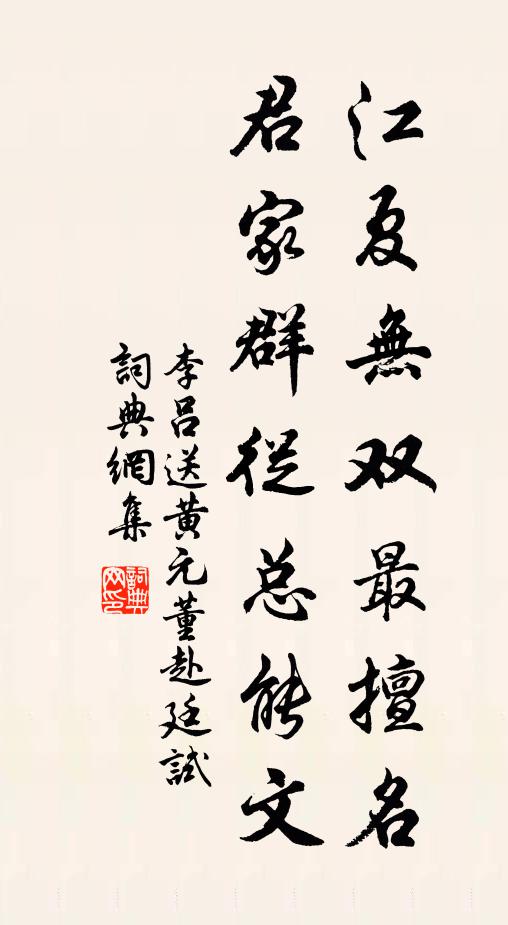 江夏無双最擅名
君家群從总能文
李吕送黄元董赴廷試
詞典網集
詞典网印